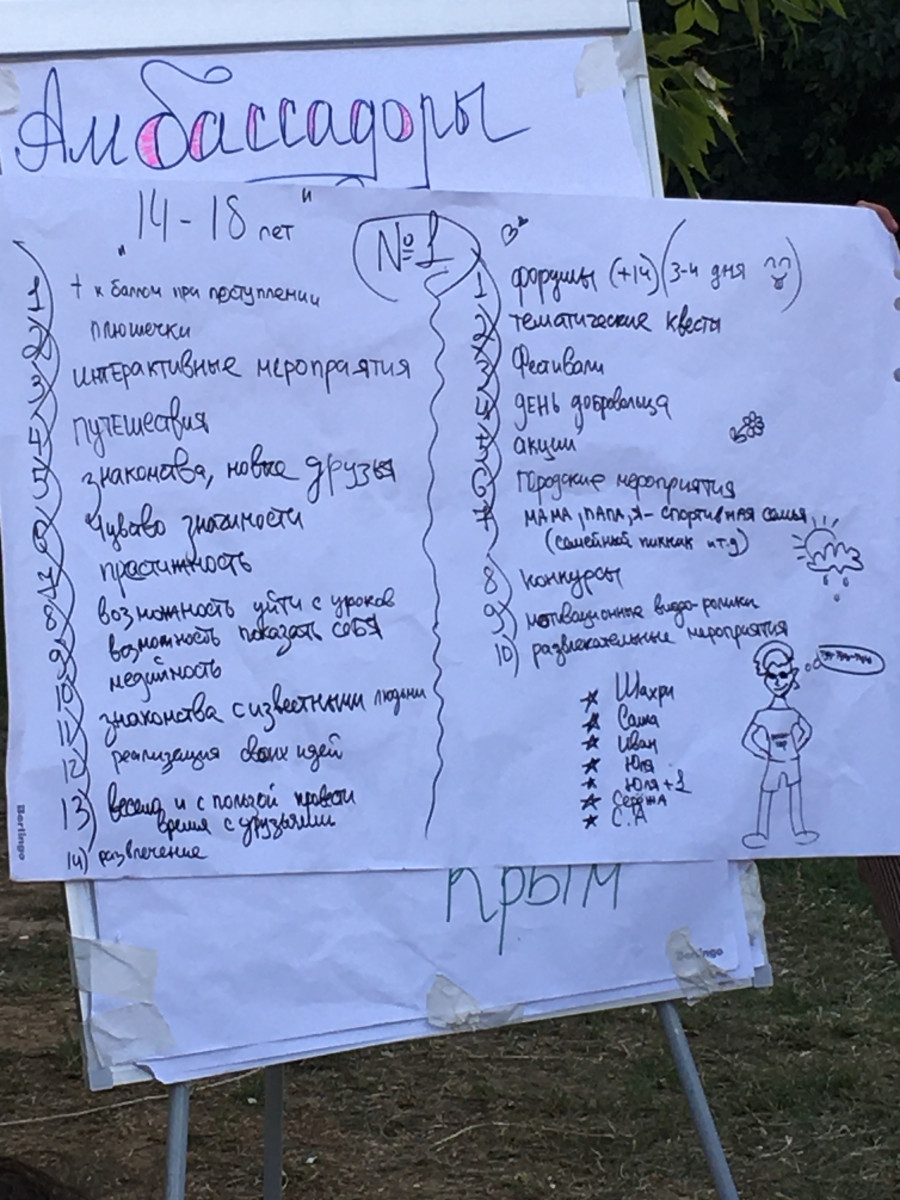 Амбассадоры
"14-18 лет"
№1
1) + к баллом при поступлении
2) плюшечки
3) интерактивные мероприятия
4) путешествия
5) знакомства, новые друзья
6) Чувсво значимости
7) престижность
8) возможность уйти с уроков
9) возможность показать себя
10) медийность
11) знакомства с известными людьми
12) реализация своих идей
13) весело и с пользой провести
время с друзьями
14) развлечение
1) форумы (+14) (3-4 дня
2) тематические квесты
3) Фестивали
4) ДЕНЬ добровольца
5) акции
6) городские мероприятия
7) МАМА, ПАПА, Я - спортивная семья
(семейный пикник и т.д)
8) конкурсы
9) мотивационные видео-ролики
10) развлекательные мероприятия
Шахри
Саша
Иван
Юля
Юля+1
Серёжа
С.А
Крым
Berlingo
Berlingo